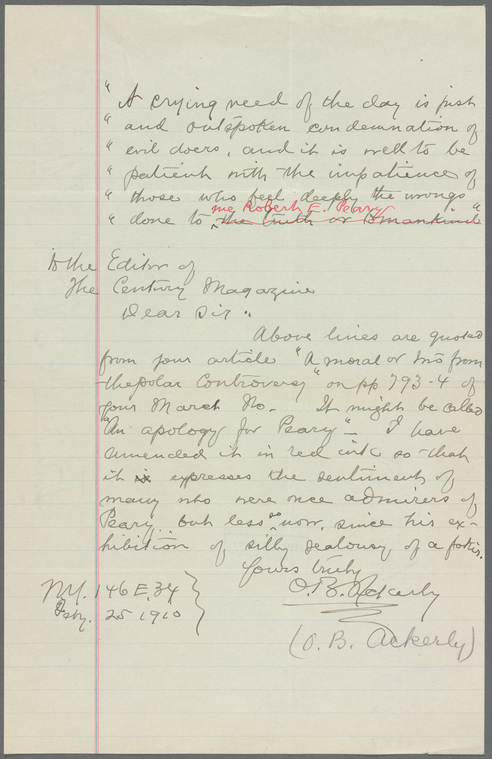 " A crying need of the day is just
" and outspoken condemnation of
" evil doers, and it is well to be
" patient with the impatience of
" those who feel deeply the wrongs
me Robert E. Peary
" done to the truth or to mankind "
To the Editor of
The Century Magazine
Dear Sir "
Above lines are quoted
from your article "A moral or two from
the polar Controversy" on pp 793-4 of
your March No. It might be called
"An apology for Peary" - I have
amended it in red ink so that
it is expresses the sentiments of
many who were once admirers of
Peary, but less so now, since his ex-
hibition of silly jealousy of a
Yours truly
O. B. Ackerly
N.Y. 146 E. 34
Feby. 25 1910
(O. B. Ackerly)